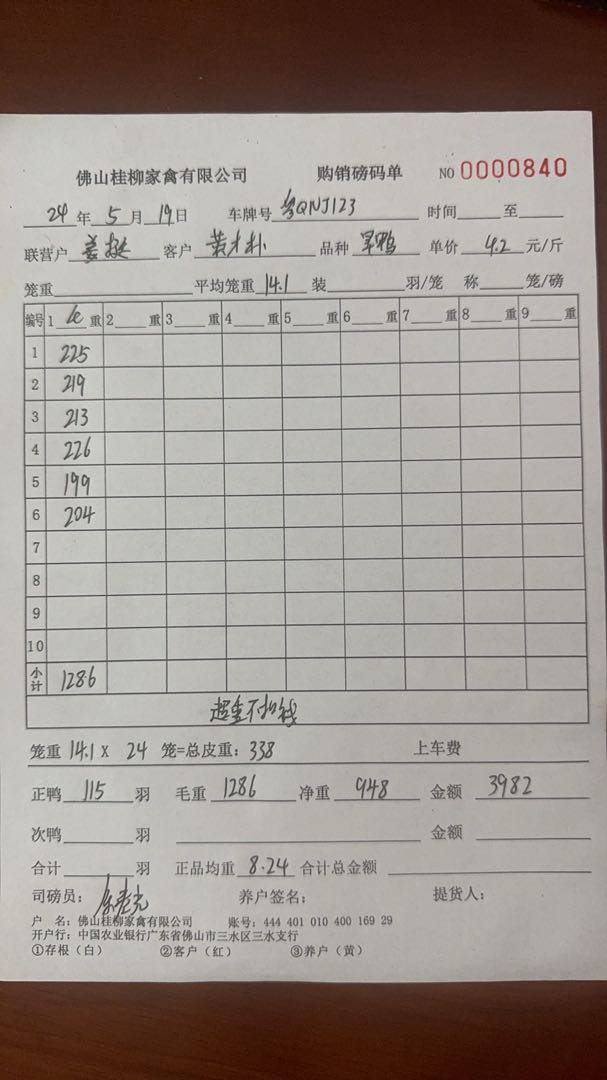 佛山桂柳家禽有限公司 购销磅码单 NO 0000840
24 年 5 月 19 日 车牌号 粤QNJ123 时间 至
联营户 客户 品种 旱鸭 单价 4.2 元/斤
笼重 平均笼重 14.1 装 羽/笼 称 笼/磅
编号 1 重 2 重 3 重 4 重 5 重 6 重 7 重 8 重 9 重
1 225
2 219
3 213
4 226
5 199
6 204
7
8
9
10
小计 1286
超重不扣钱
笼重 14.1 X 24 笼=总皮重: 338 上车费
正鸭 115 羽 毛重 1286 净重 948 金额 3982
次鸭 羽 金额
合计 羽 正品均重 8.24 合计总金额
司磅员: 养户签名: 提货人:
户 名: 佛山桂柳家禽有限公司 账号: 444 401 010 400 169 29
开户行: 中国农业银行广东省佛山市三水区三水支行
①存根（白） ②客户（红） ③养户（黄）